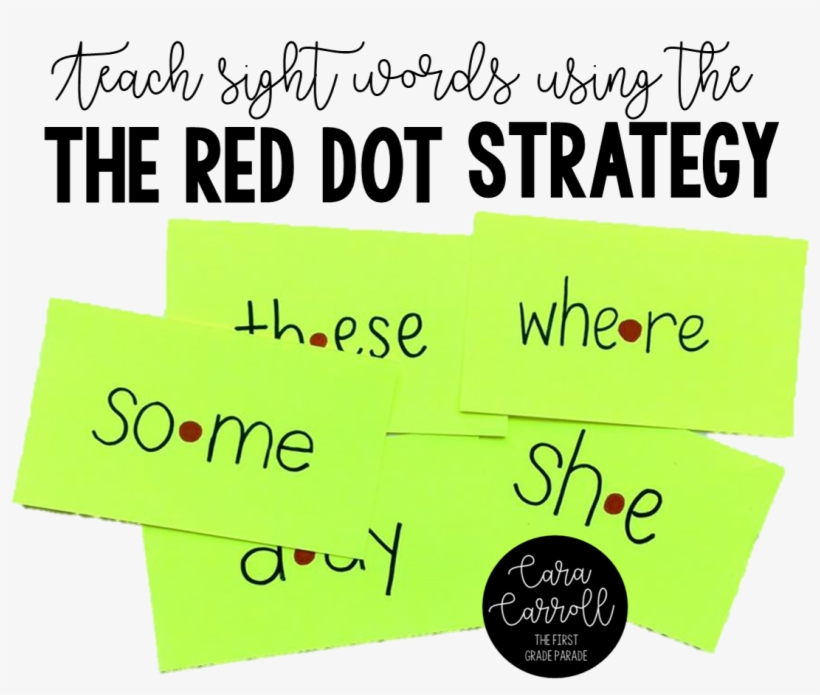 teach sight words using the
THE RED DOT STRATEGY
th•ese
whe•re
so•me
sh•e
Cara
Carroll
THE FIRST
GRADE PARADE